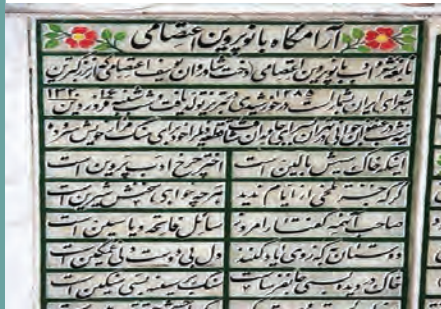 آرامگاه بانو پروین اعتصامی
نابغه شرق ادب بانو پروین اعتصامی دخت شادروان یوسف اعتصامی که از بزرگترین
شعرای ایران بشمار است در ۱۲۸۵ خورشیدی در تبریز تولد یافت شب شنبه ۱۶ فروردین ۱۳۲۰
در تهران
اینکه خاک سیهش بالین است اختر چرخ ادب پروین است
گرچه جز تلخی از ایام ندید هرچه خواهی سخنش شیرین است
صاحب آنهمه گفتار امروز سائل فاتحه و یاسین است
دوستان به که ز وی یاد کنند دل بی دوست دلی غمگین است
خاک در دیده بسی جان فرساست سنگ بر سینه بسی سنگین است